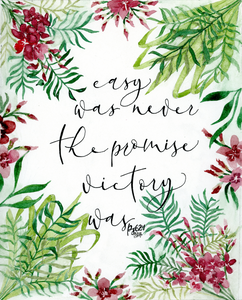 easy
was never
the promise
victory
was